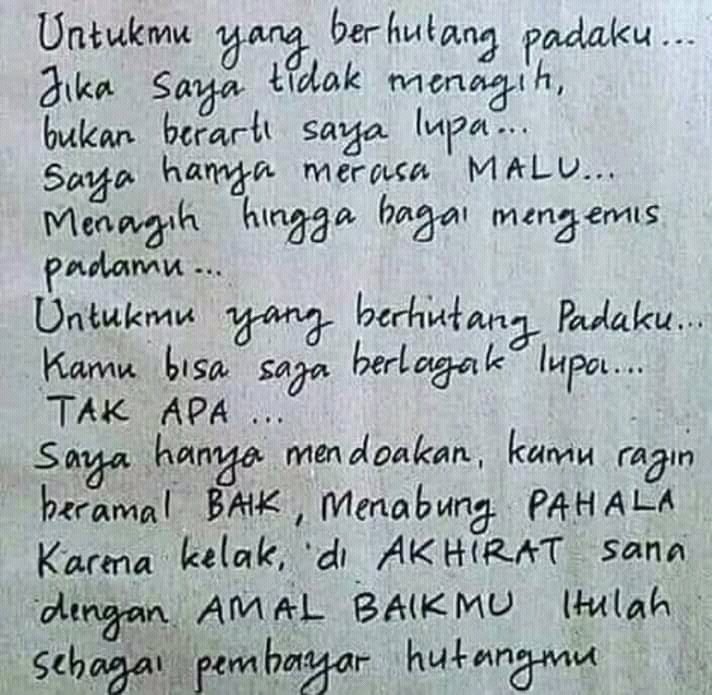 Untukmu yang berhutang padaku...
Jika saya tidak menagih,
bukan berarti saya lupa...
Saya hanya merasa MALU...
Menagih hingga bagai mengemis
padamu...
Untukmu yang berhutang Padaku...
Kamu bisa saja berlagak lupa...
TAK APA ...
Saya hanya mendoakan, kamu rajin
beramal BAIK, Menabung PAHALA
Karena kelak, di AKHIRAT sana
dengan AMAL BAIKMU Itulah
sebagai pembayar hutangmu